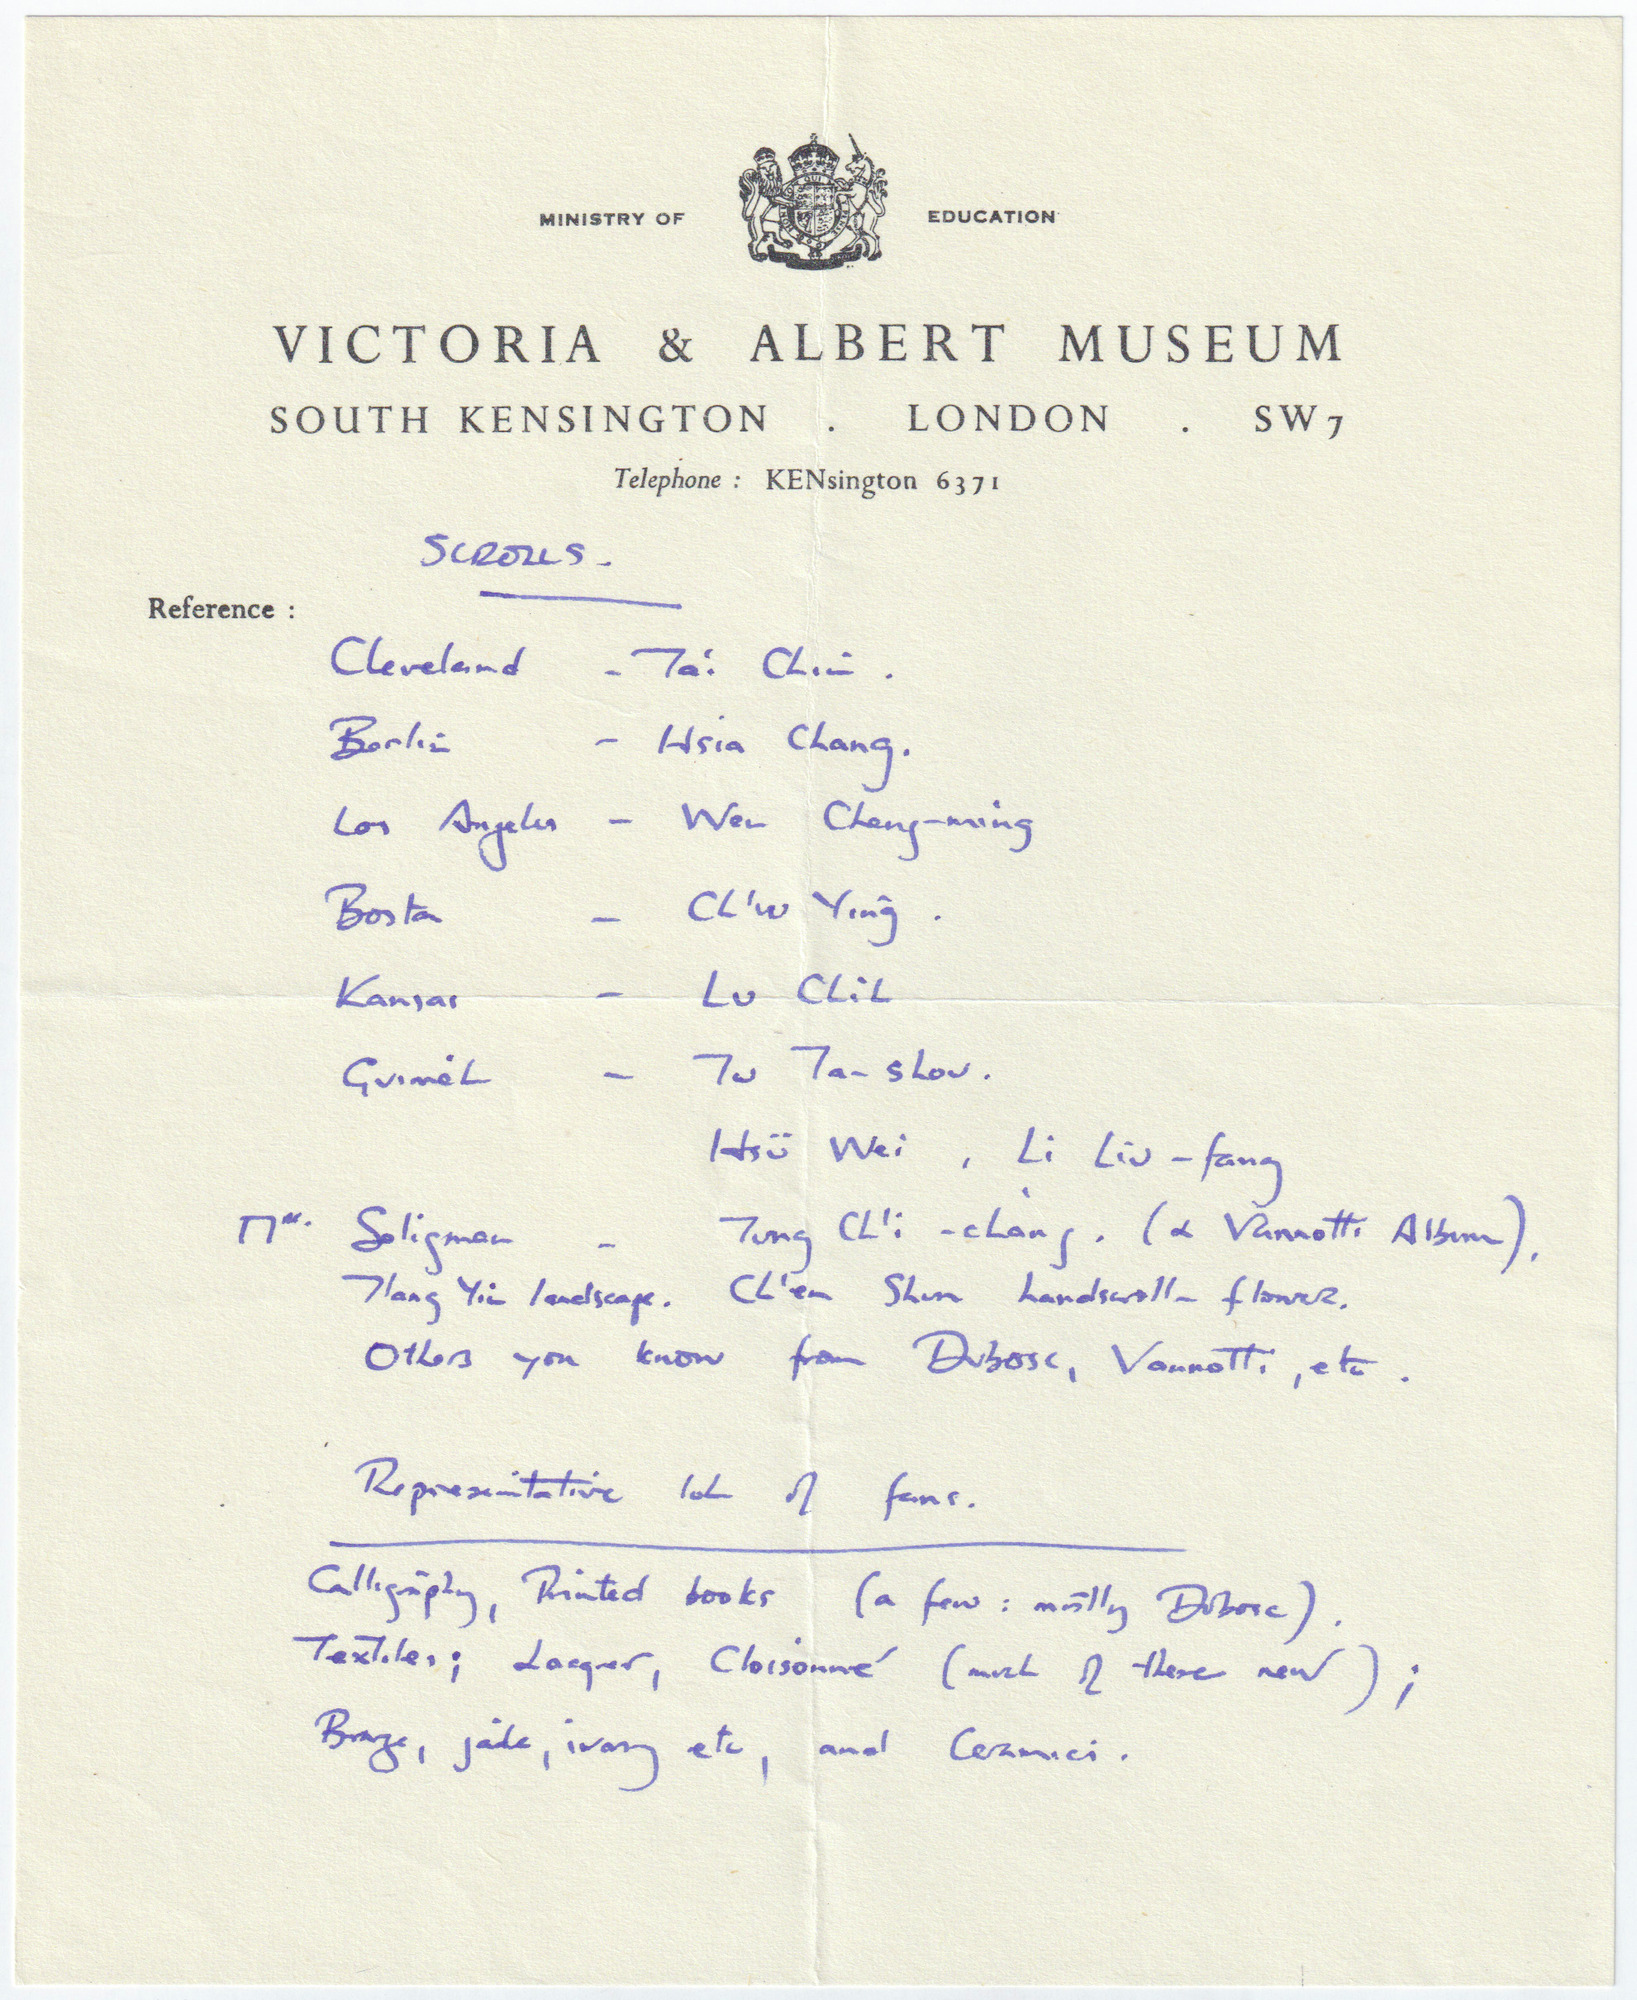 MINISTRY OF EDUCATION
VICTORIA & ALBERT MUSEUM
SOUTH KENSINGTON . LONDON . SW7
Telephone : KENsington 6371
SCROLLS.
Reference :
Cleveland - Tai Chin.
Berlin - Hsia Chang.
Los Angeles - Wen Cheng-ming
Boston - Ch'iu Ying.
Kansas - Lu Chih
Guimet - Tu Ta-shou.
Hsü Wei, Li Liu-fang
Mrs. Seligman - Tung Ch'i-chang. (& Vannotti Album).
T'ang Yin landscape. Ch'en Shun handscroll - flowers.
Others you know from Dubosc, Vannotti, etc.
Representative lot of fans.
Calligraphy, Printed books (a few : mostly Dubosc).
Textiles; Lacquer, Cloisonné (much of these new);
Bronze, jade, ivory etc, and Ceramics.